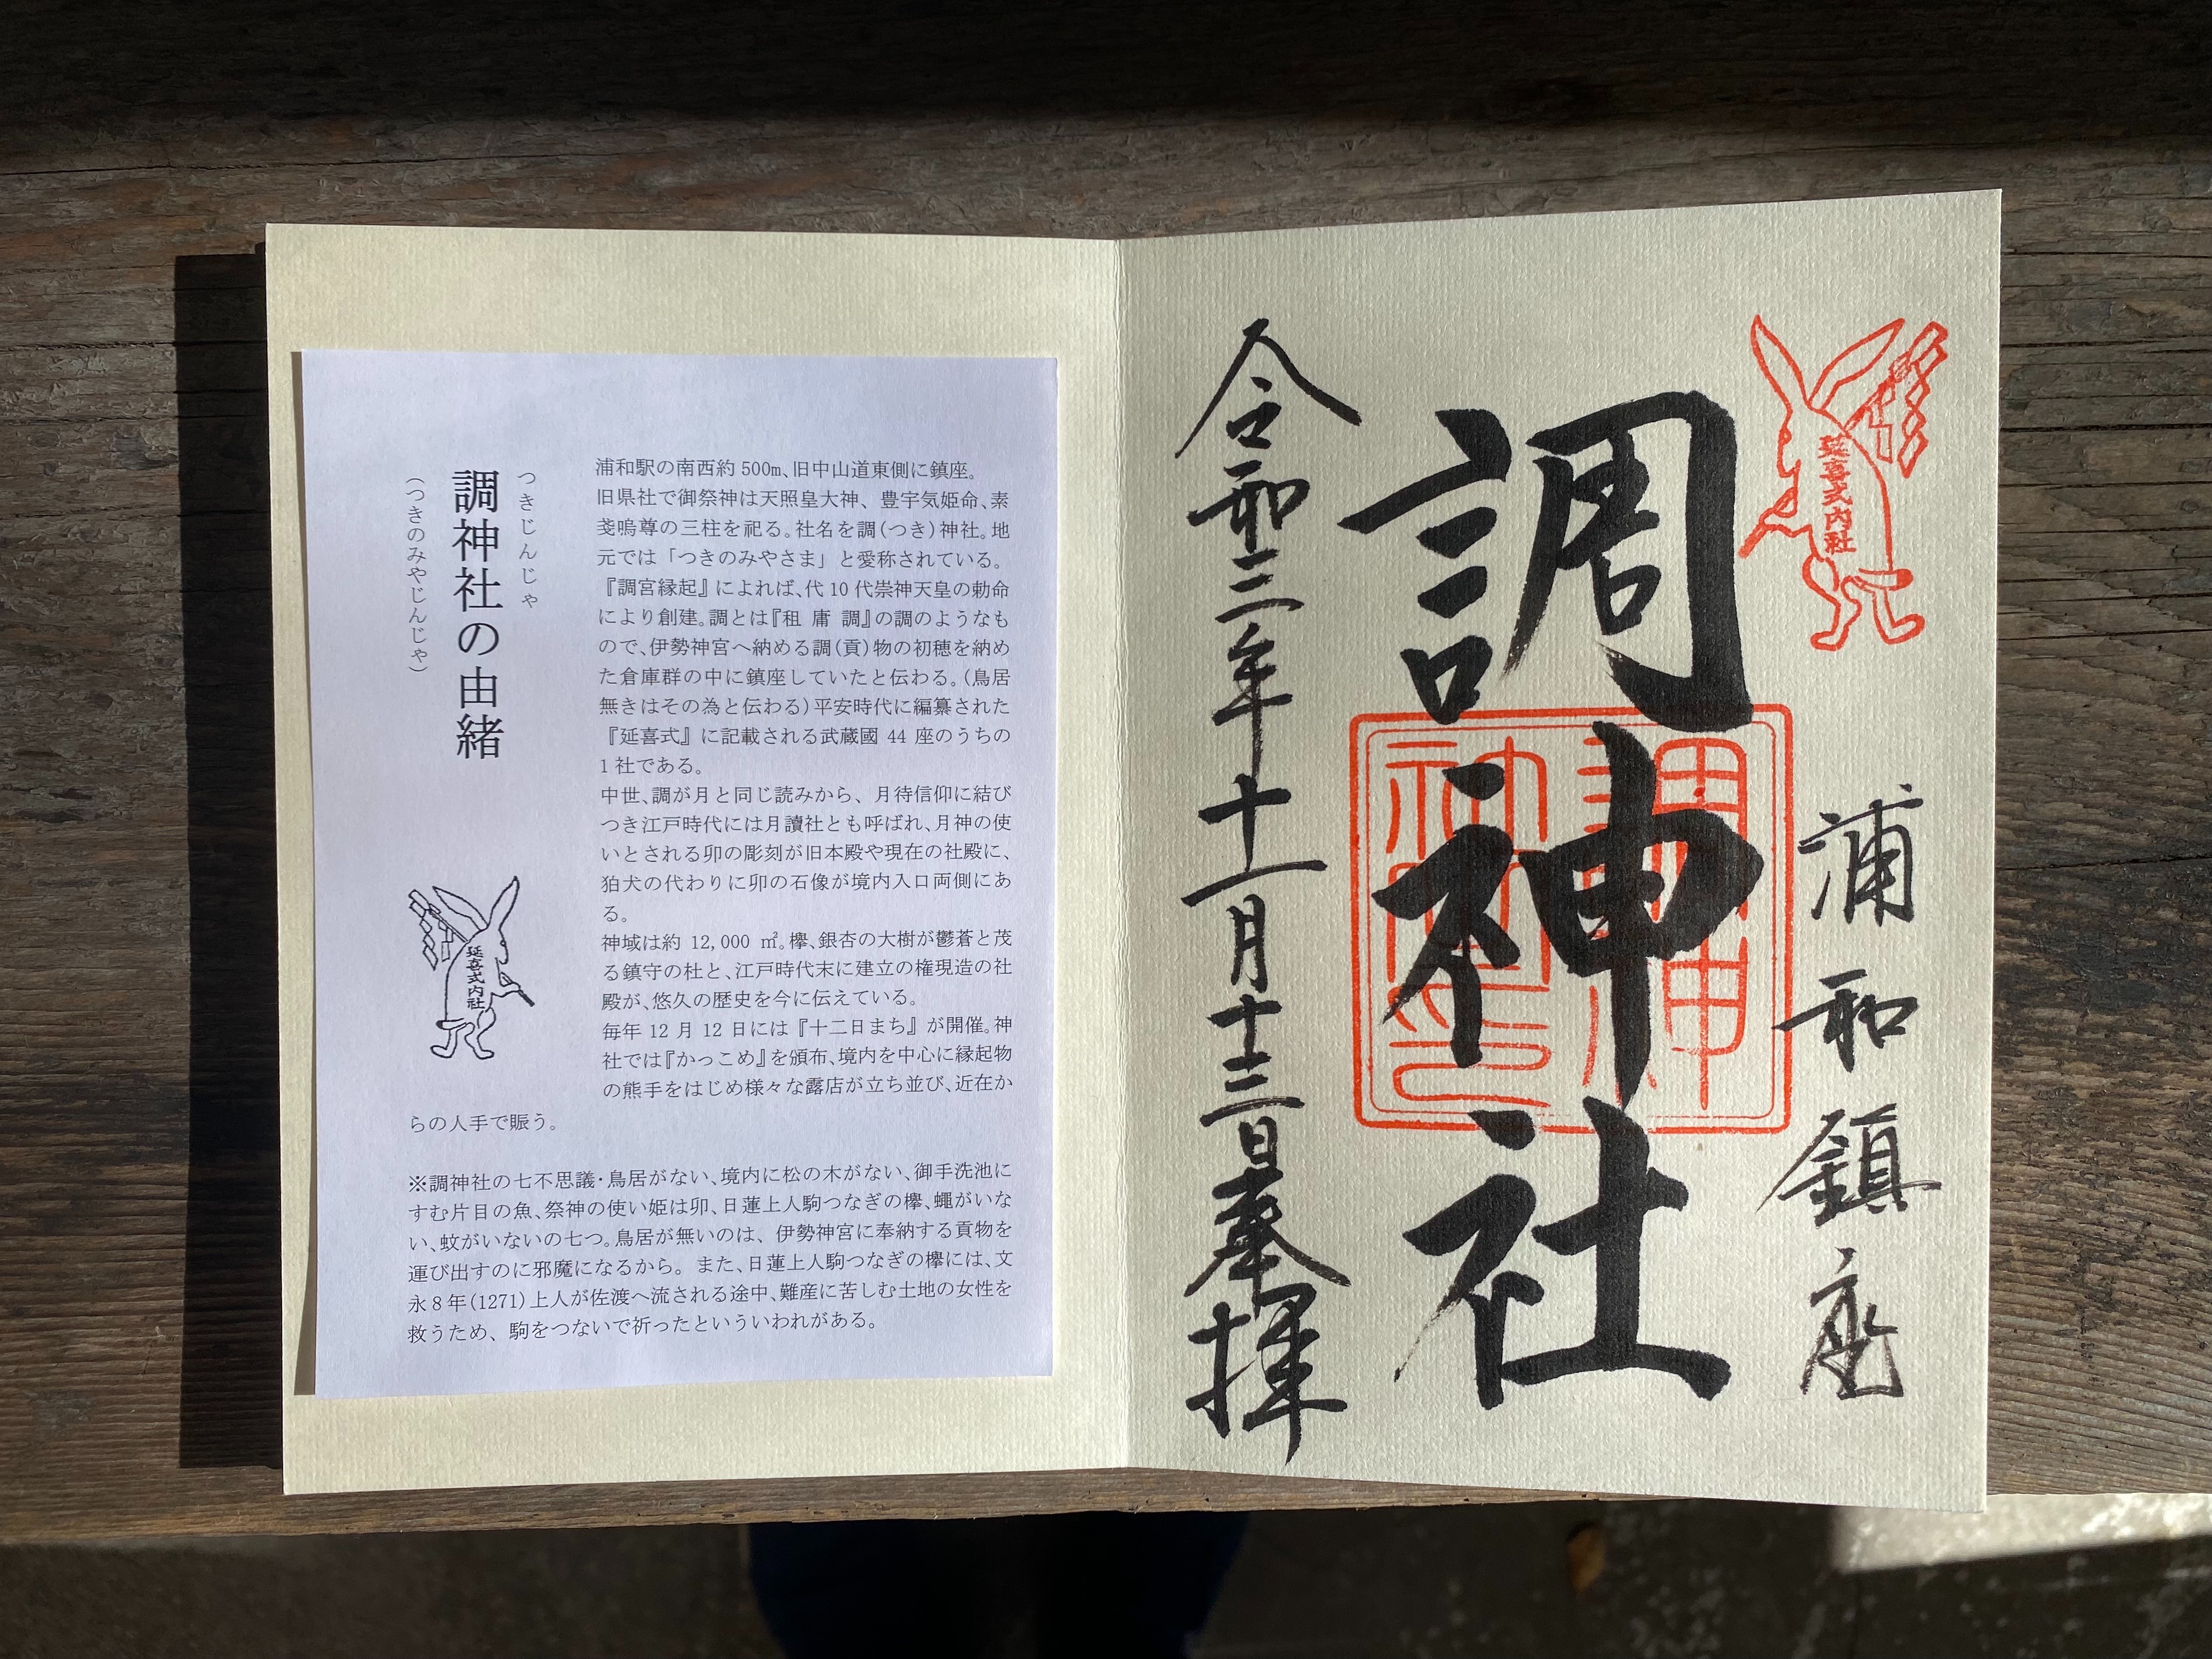 浦和鎮座
延喜式内社
調神社
令和三年十一月十三日奉拝
つきじんじゃ
調神社の由緒
(つきのみやじんじゃ)
浦和駅の南西約500m、旧中山道東側に鎮座。
旧県社で御祭神は天照皇大神、豊宇気姫命、素
戔嗚尊の三柱を祀る。社名を調(つき)神社。地
元では「つきのみやさま」と愛称されている。
『調宮縁起』によれば、代10代崇神天皇の勅命
により創建。調とは『租 庸 調』の調のようなも
ので、伊勢神宮へ納める調(貢)物の初穂を納め
た倉庫群の中に鎮座していたと伝わる。(鳥居
無きはその為と伝わる)平安時代に編纂された
『延喜式』に記載される武蔵國 44 座のうちの
1社である。
中世、調が月と同じ読みから、月待信仰に結び
つき江戸時代には月讀社とも呼ばれ、月神の使
いとされる卯の彫刻が旧本殿や現在の社殿に、
狛犬の代わりに卯の石像が境内入口両側にあ
る。
神域は約 12,000 ㎡。欅、銀杏の大樹が鬱蒼と茂
る鎮守の杜と、江戸時代末に建立の権現造の社
殿が、悠久の歴史を今に伝えている。
毎年 12 月 12 日には『十二日まち』が開催。神
社では『かっこめ』を頒布、境内を中心に縁起物
の熊手をはじめ様々な露店が立ち並び、近在か
らの人手で賑う。
延喜式内社
※調神社の七不思議・鳥居がない、境内に松の木がない、御手洗池に
すむ片目の魚、祭神の使い姫は卯、日蓮上人駒つなぎの欅、蠅がいな
い、蚊がいないの七つ。鳥居が無いのは、伊勢神宮に奉納する貢物を
運び出すのに邪魔になるから。また、日蓮上人駒つなぎの欅には、文
永8年(1271)上人が佐渡へ流される途中、難産に苦しむ土地の女性を
救うため、駒をつないで祈ったといういわれがある。